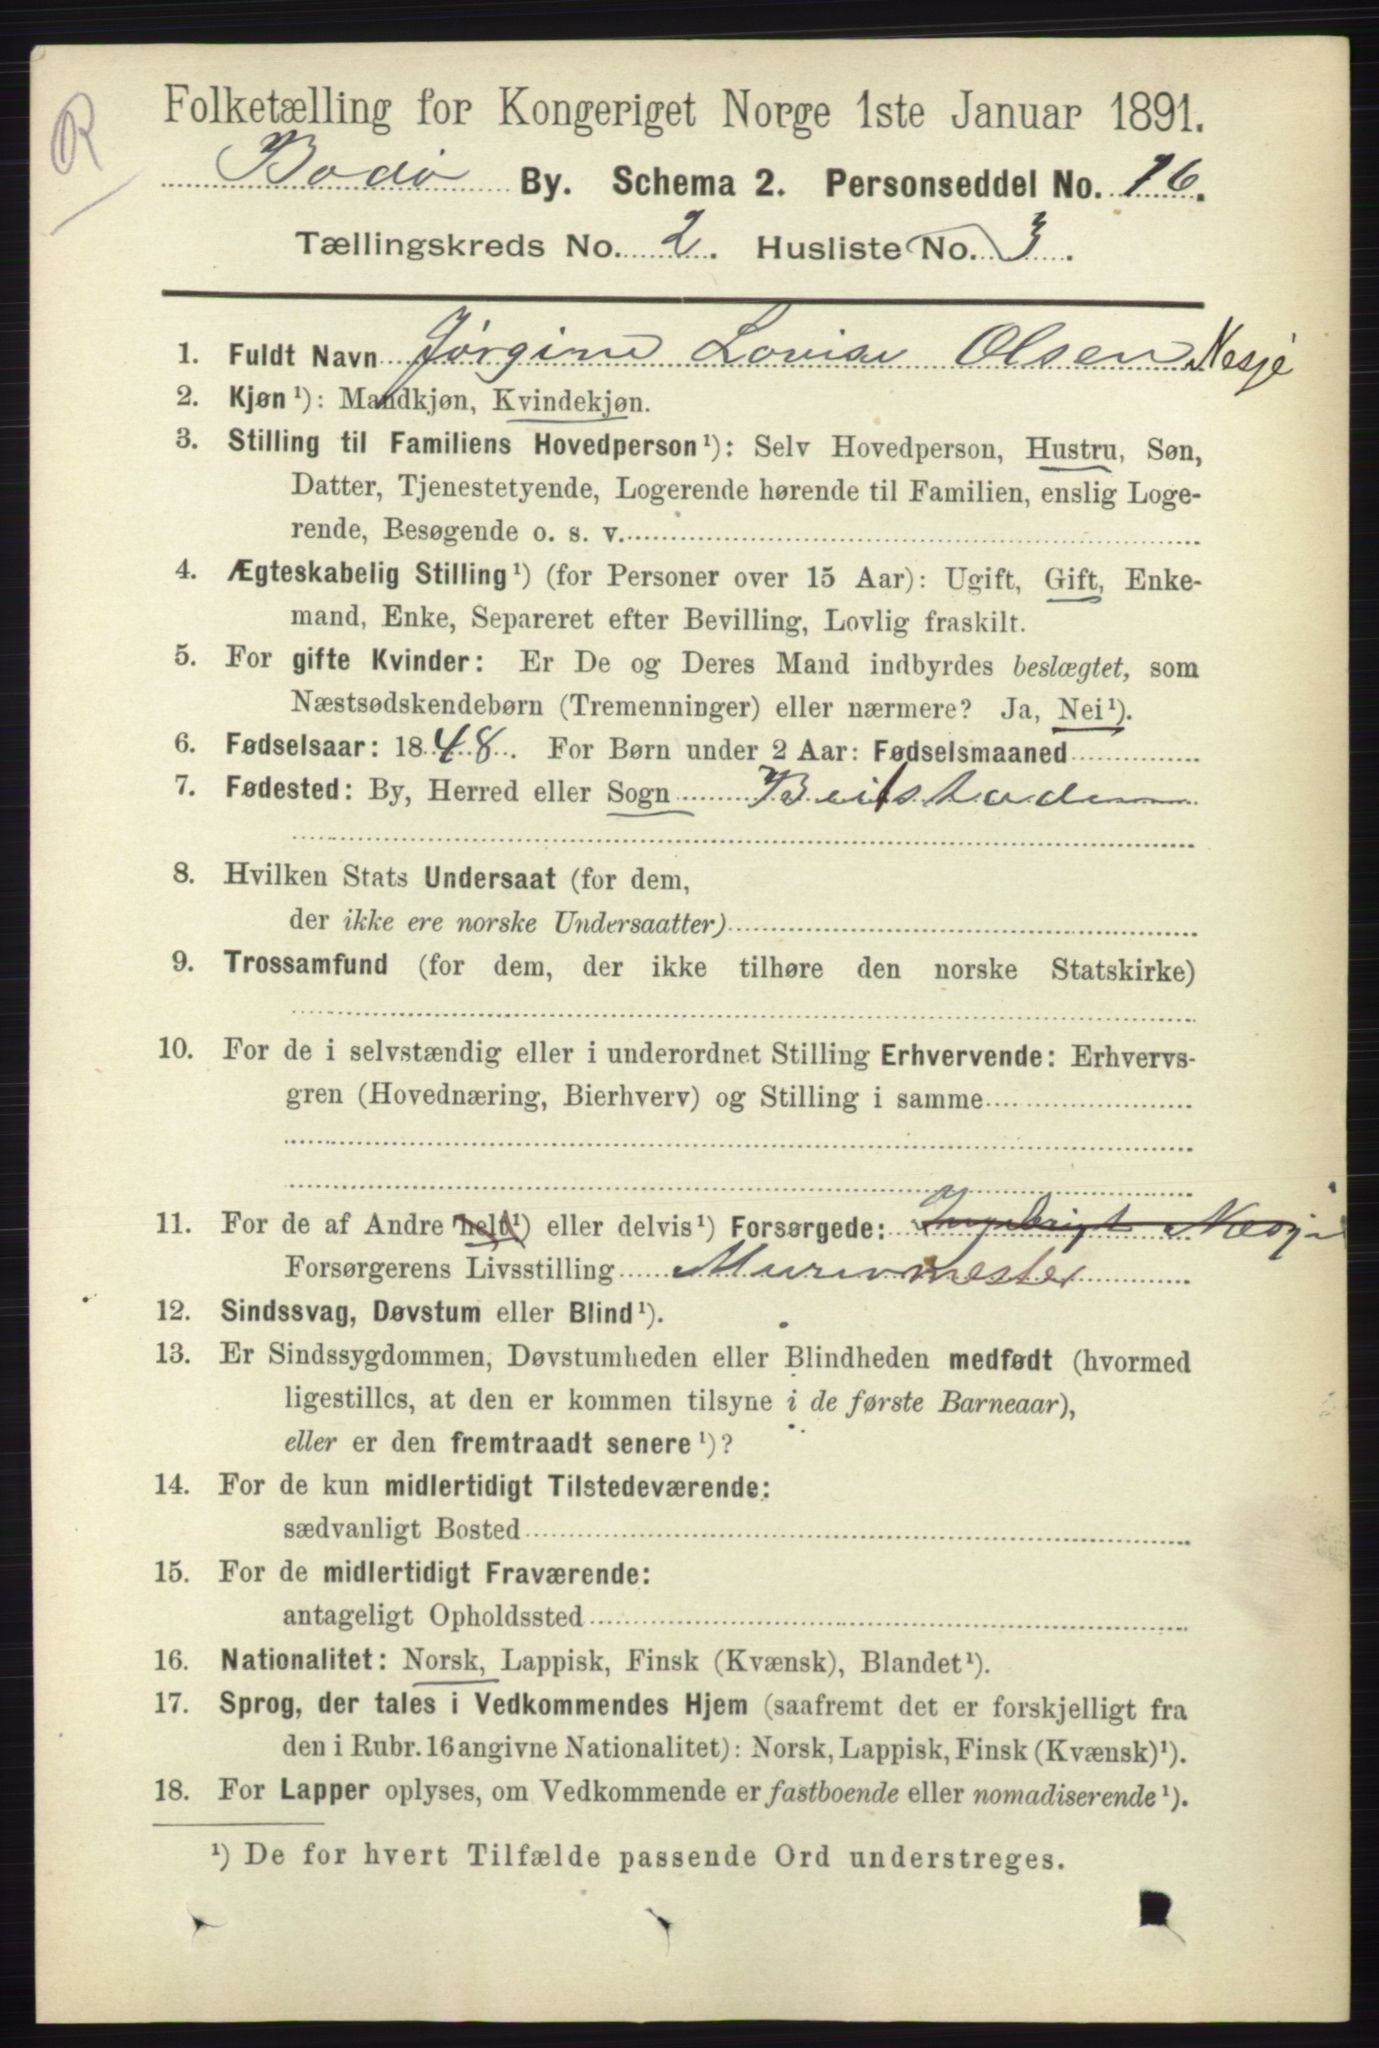 R
Folketælling for Kongeriget Norge 1ste Januar 1891.
Bodø By. Schema 2. Personseddel No. 16.
Tællingskreds No. 2. Husliste No. 3.
1. Fuldt Navn Jørgine Lovise Olsen Nesje
2. Kjøn¹): Mandkjøn, Kvindekjøn.
3. Stilling til Familiens Hovedperson¹): Selv Hovedperson, Hustru, Søn,
Datter, Tjenestetyende, Logerende hørende til Familien, enslig Loge-
rende, Besøgende o. s. v.
4. Ægteskabelig Stilling¹) (for Personer over 15 Aar): Ugift, Gift, Enke-
mand, Enke, Separeret efter Bevilling, Lovlig fraskilt.
5. For gifte Kvinder: Er De og Deres Mand indbyrdes beslægtet, som
Næstsødskendebørn (Tremenninger) eller nærmere? Ja, Nei¹).
6. Fødselsaar: 1848. For Børn under 2 Aar: Fødselsmaaned
7. Fødested: By, Herred eller Sogn Beitstaden
8. Hvilken Stats Undersaat (for dem,
der ikke ere norske Undersaatter)
9. Trossamfund (for dem, der ikke tilhøre den norske Statskirke)
10. For de i selvstændig eller i underordnet Stilling Erhvervende: Erhvervs-
gren (Hovednæring, Bierhverv) og Stilling i samme
11. For de af Andre helt¹) eller delvis¹) Forsørgede: Ingebrigt Nesje
Forsørgerens Livsstilling Murermester
12. Sindssvag, Døvstum eller Blind¹).
13. Er Sindssygdommen, Døvstumheden eller Blindheden medfødt (hvormed
ligestilles, at den er kommen tilsyne i de første Barneaar),
eller er den fremtraadt senere¹)?
14. For de kun midlertidigt Tilstedeværende:
sædvanligt Bosted
15. For de midlertidigt Fraværende:
antageligt Opholdssted
16. Nationalitet: Norsk, Lappisk, Finsk (Kvænsk), Blandet¹).
17. Sprog, der tales i Vedkommendes Hjem (saafremt det er forskjelligt fra
den i Rubr. 16 angivne Nationalitet): Norsk, Lappisk, Finsk (Kvænsk)¹).
18. For Lapper oplyses, om Vedkommende er fastboende eller nomadiserende¹).
¹) De for hvert Tilfælde passende Ord understreges.